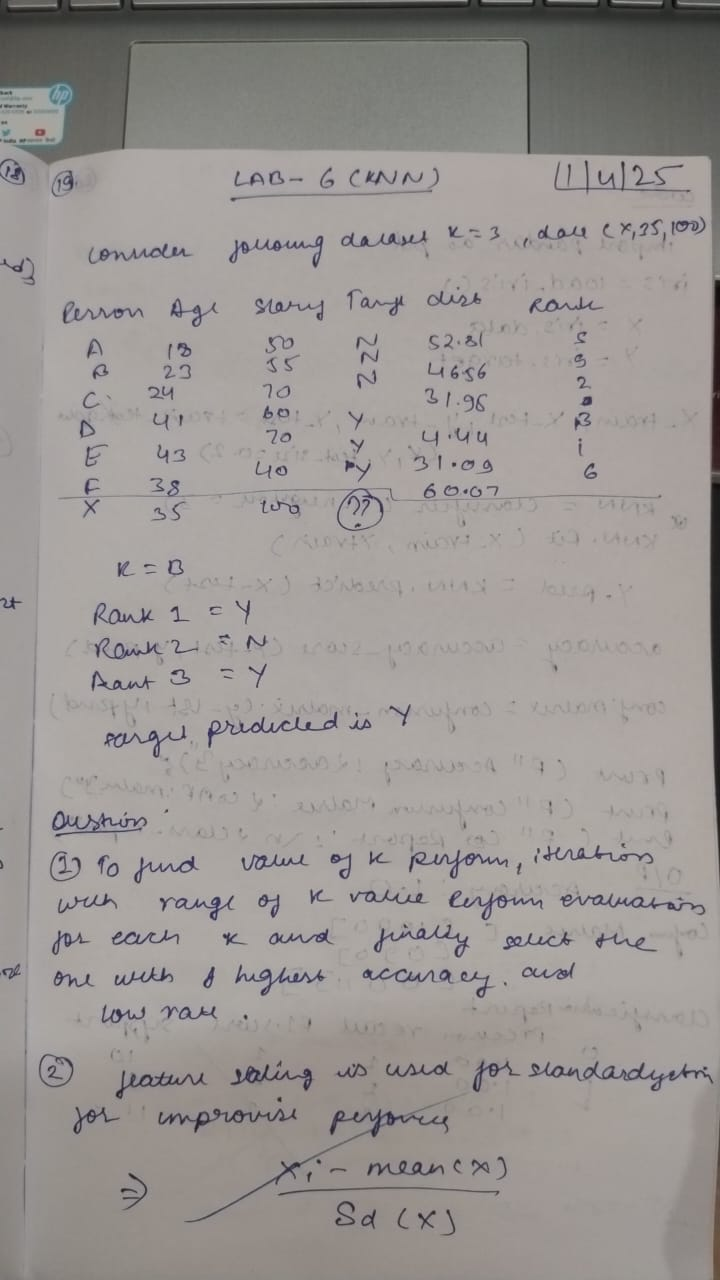 19.
LAB-6 (KNN)
11/4/25
Consider following dataset K=3, data (X,35,100)
Person Age Slary Targe dist Rank
A 18 50 N 52.81 5
B 23 55 N 4656
C. 24 70 N 31.96 2
D 41 60 Y 4.44 3
E 43 70 Y 31.09 1
F 38 40 Y 60.07 6
X 35 100 ??
K = 3
Rank 1 = Y
Rank 2 = N
Rank 3 = Y
target predicted is Y
Question
① To find value of K perform, iterations
with range of K value perform evaluation
for each K and finally select the
one with highest accuracy, and
low rate.
② feature scaling is used for
for improvise
⇒ Xi - mean(X)
Sd (X)